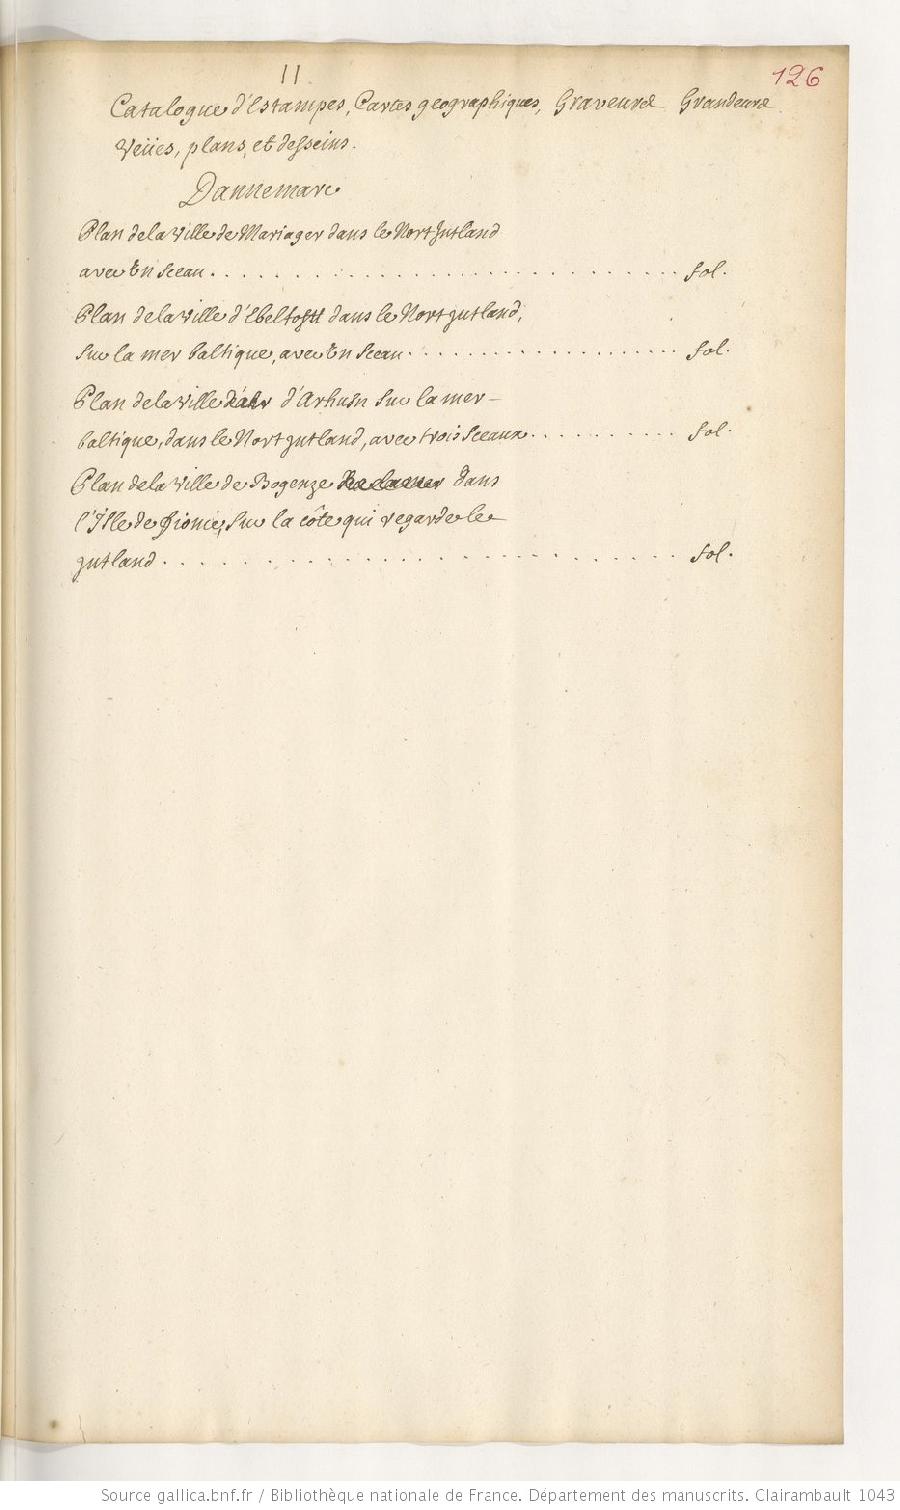 11
126
Catalogue d'Estampes, Cartes geographiques, Graveurs Grandeurs
Veües, plans, et desseins.
Dannemarc
Plan de la Ville de Mariager dans le Nort Jutland
avec Un Sceau . . . . . . . . . . . . . . . . . . . . . . . fol.
Plan de la Ville d'Ebeltoftt dans le Nort jutland,
Sur la mer baltique, avec Un Sceau . . . . . . . . . . . . . . fol.
Plan de la Ville d'Arhusn Sur la mer -
baltique, dans le Nort jutland, avec trois Sceaux . . . . . . . . . fol.
Plan de la Ville de Bogenze dans
l'Isle de fionie, Sur la côte qui regarde le
jutland . . . . . . . . . . . . . . . . . . . . . . . . . fol.
Source gallica.bnf.fr / Bibliothèque nationale de France. Département des manuscrits. Clairambault 1043